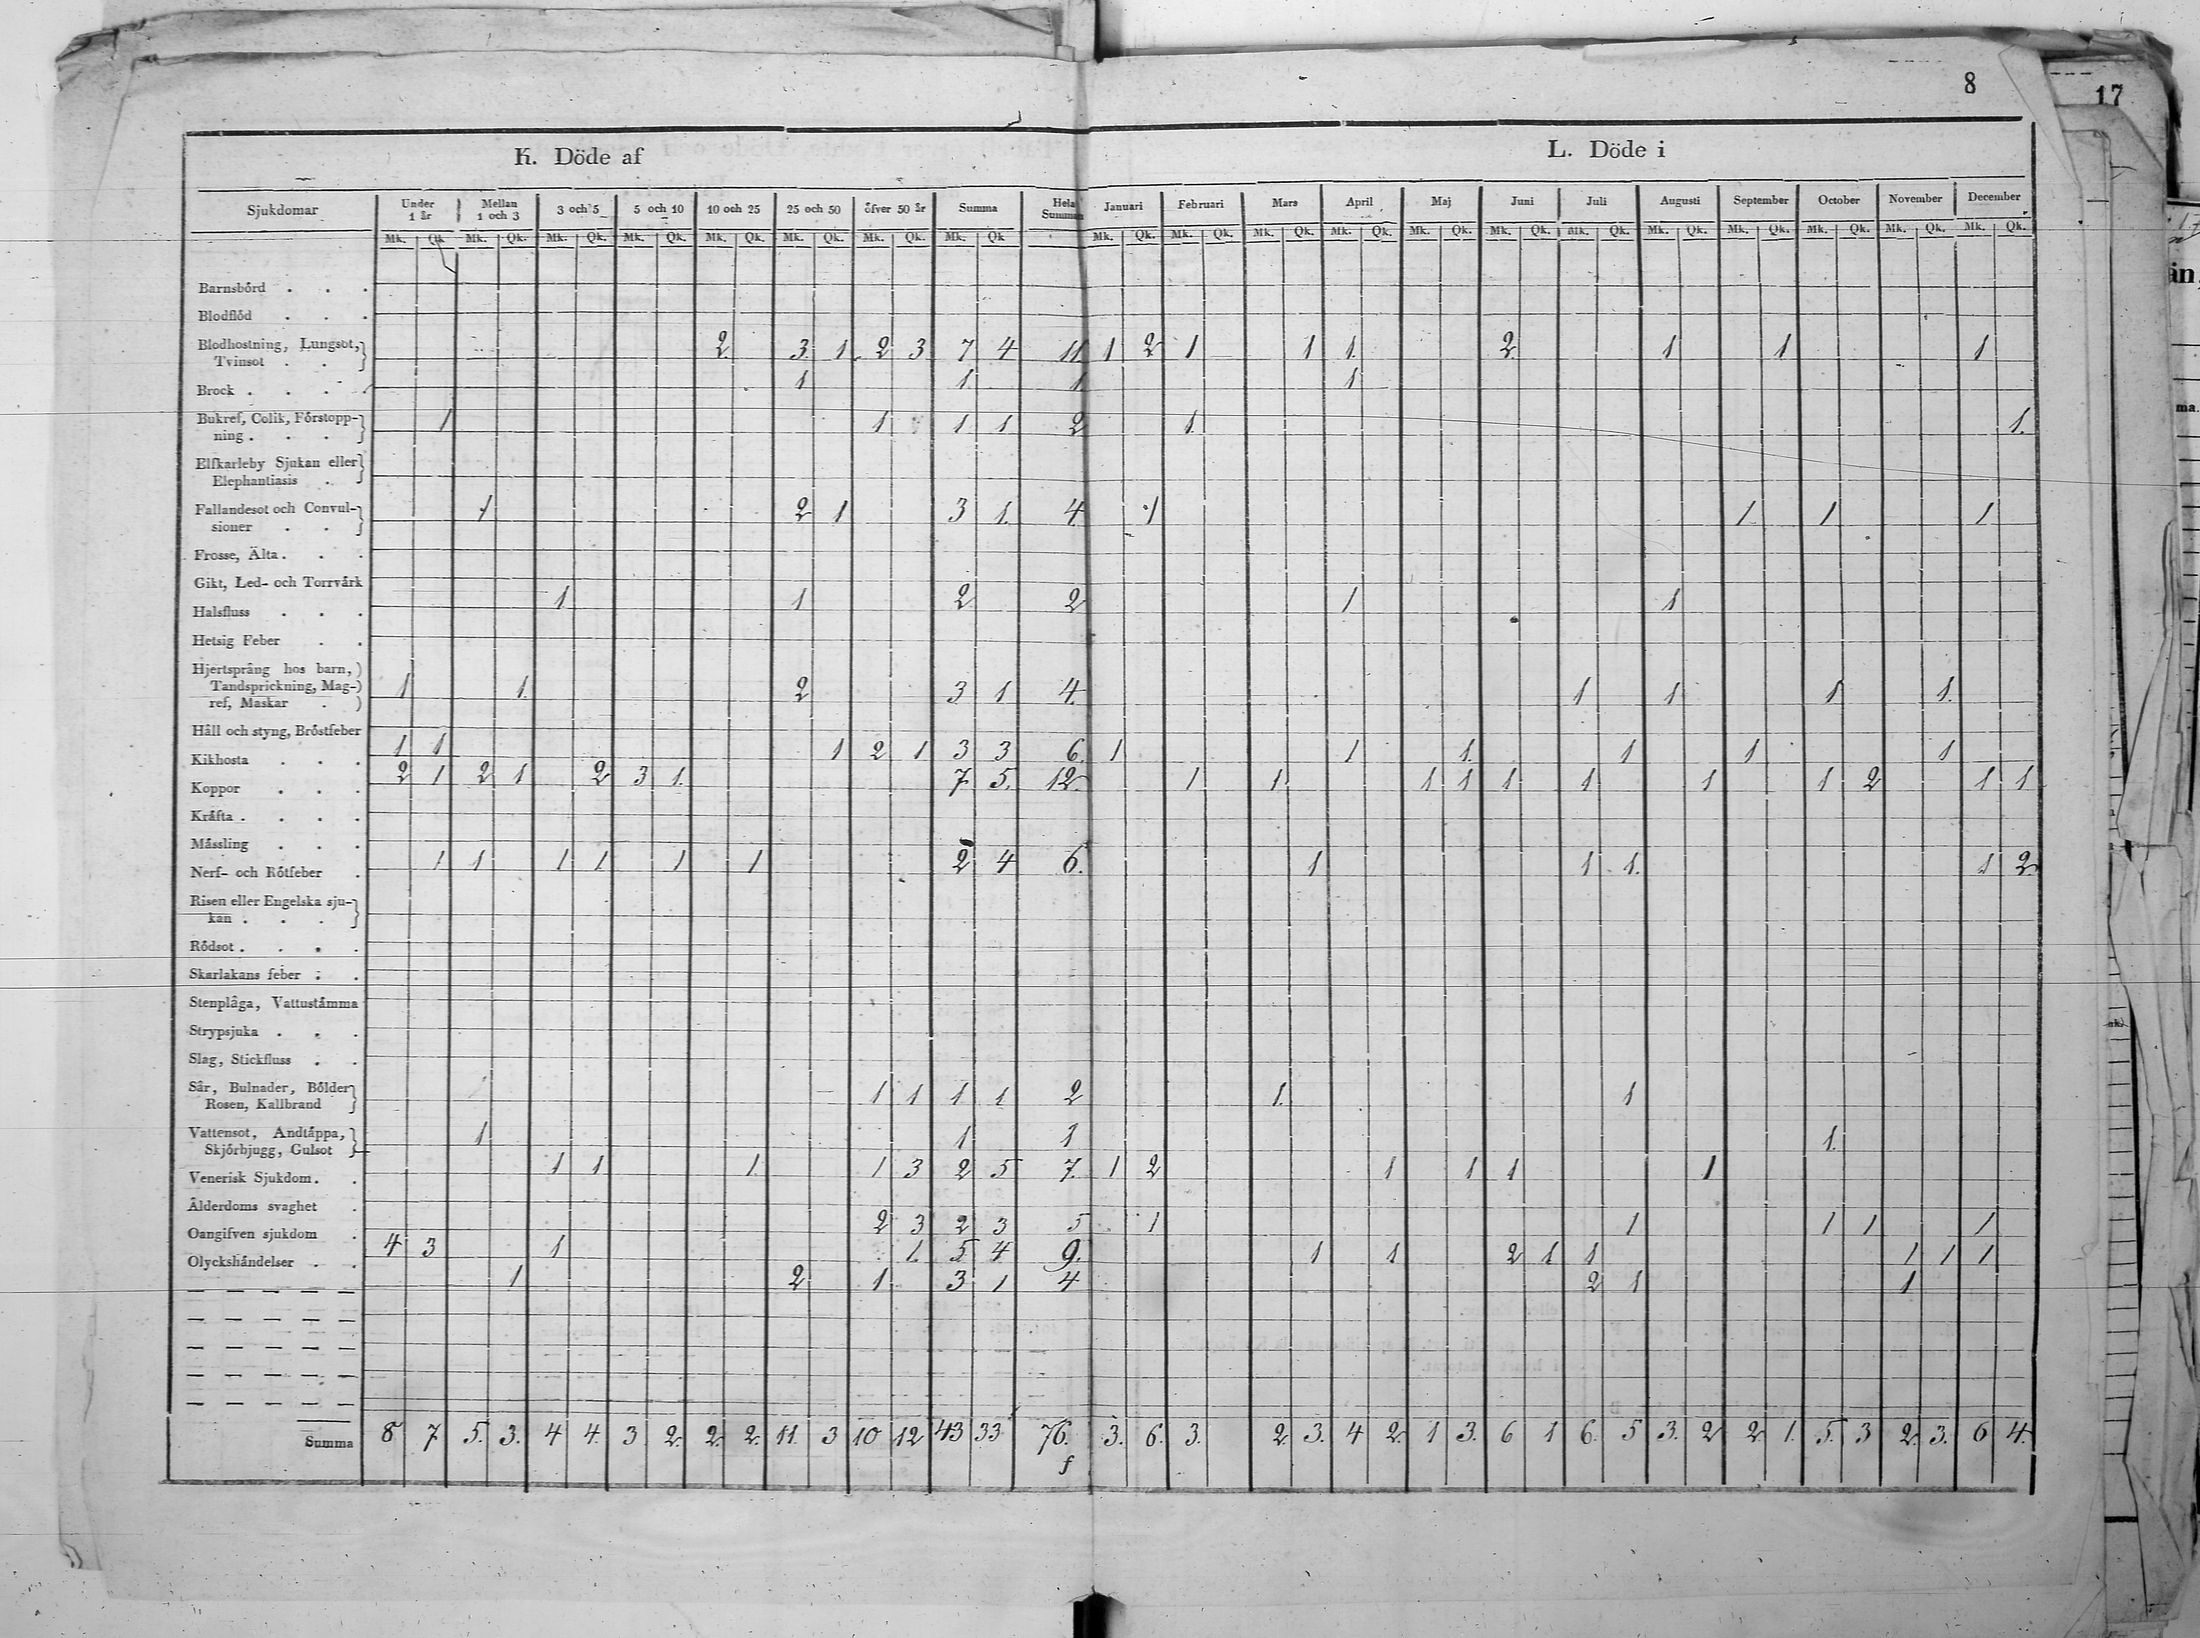 8
17
K. Döde af
L. Döde i
Sjukdomar | Under 1 år | Mellan 1 och 3 | 3 och 5 | 5 och 10 | 10 och 25 | 25 och 50 | öfver 50 år | Summa | Hela Summan | Januari | Februari | Mars | April | Maj | Juni | Juli | Augusti | September | October | November | December
Mk. Qk. Mk. Qk. Mk. Qk. Mk. Qk. Mk. Qk. Mk. Qk. Mk. Qk. Mk. Qk Mk. Qk. Mk. Qk. Mk. Qk. Mk. Qk. Mk. Qk. Mk. Qk. Mk. Qk. Mk. Qk. Mk. Qk. Mk. Qk. Mk. Qk. Mk. Qk.
Barnsbörd . . .
Blodflöd . . .
Blodhostning, Lungsot,
Tvinsot . . 2 3 1 2 3 7 4 11 1 2 1 1 1 2 1 1 1
Brock . . . . 1 1 1 1
Bukref, Colik, Förstopp-
ning . . . 1 1 1 1 2 1 1
Elfkarleby Sjukan eller
Elephantiasis .
Fallandesot och Convul-
sioner . . 1 2 1 3 1 4 1 1 1 1
Frosse, Älta . . .
Gikt, Led- och Torrvärk
Halsfluss . . . 1 1 2 2 1 1
Hetsig Feber . .
Hjertsprång hos barn,
Tandsprickning, Mag-
ref, Maskar . 1 1 2 3 1 4 1 1 1 1
Håll och styng, Bröstfeber
Kikhosta . . . 1 1 1 2 1 3 3 6 1 1 1 1 1 1
Koppor . . . 2 1 2 1 2 3 1 7 5 12 1 1 1 1 1 1 1 1 2 1 1
Kräfta . . . .
Mässling . . .
Nerf- och Rötfeber . 1 1 1 1 1 1 2 4 6 1 1 1 1 2
Risen eller Engelska sju-
kan . . .
Rödsot . . . .
Skarlakans feber . .
Stenplåga, Vattustämma
Strypsjuka . . .
Slag, Stickfluss . .
Sår, Bulnader, Bölder
Rosen, Kallbrand 1 1 1 1 2 1 1
Vattensot, Andtäppa, 1 1 1 1
Skjörbjugg, Gulsot
Venerisk Sjukdom . . 1 1 1 1 3 2 5 7 1 2 1 1 1 1
Ålderdoms svaghet .
Oangifven sjukdom . 2 3 2 3 5 1 1 1 1 1
Olyckshändelser . . 4 3 1 1 5 4 9 1 1 2 1 1 1 1 1
1 2 1 3 1 4 2 1 1
Summa 8 7 5 3 4 4 3 2 2 2 11 3 10 12 43 33 76 3 6 3 2 3 4 2 1 3 6 1 6 5 3 2 2 1 5 3 2 3 6 4